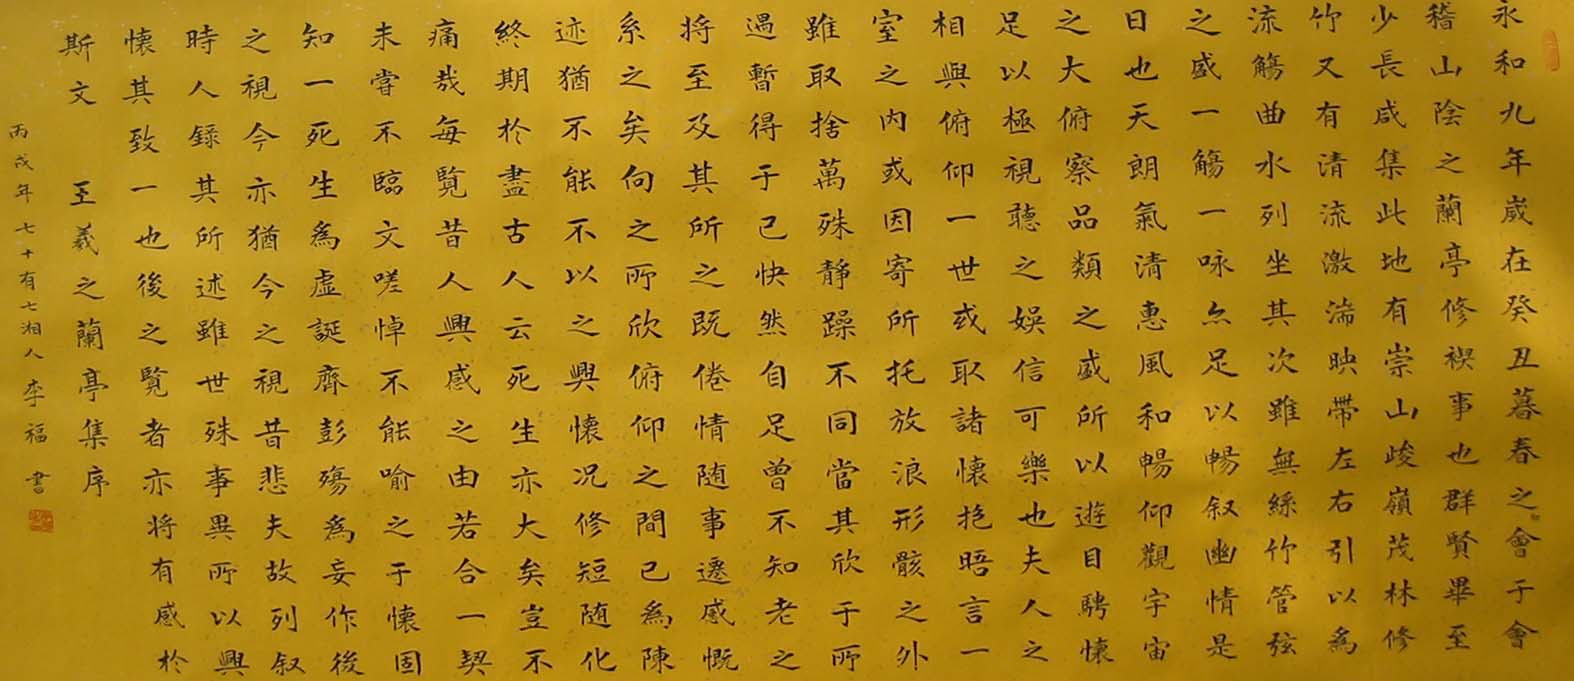 永和九年歲在癸丑暮春之會于會
稽山陰之蘭亭修禊事也群賢畢至
少長咸集此地有崇山峻嶺茂林修
竹又有清流激湍映帶左右引以為
流觴曲水列坐其次雖無絲竹管弦
之盛一觴一咏亦足以暢叙幽情是
日也天朗氣清惠風和暢仰觀宇宙
之大俯察品類之盛所以遊目騁懷
足以極視聽之娛信可樂也夫人之
相與俯仰一世或取諸懷抱晤言一
室之內或因寄所托放浪形骸之外
雖取捨萬殊靜躁不同當其欣于所
遇暫得于己快然自足曾不知老之
將至及其所之既倦情随事遷感慨
系之矣向之所欣俯仰之間已為陳
迹猶不能不以之興懷况修短随化
終期於盡古人云死生亦大矣豈不
痛哉每覽昔人興感之由若合一契
未嘗不臨文嗟悼不能喻之于懷固
知一死生為虛誕齊彭殤為妄作後
之視今亦猶今之視昔悲夫故列叙
時人錄其所述雖世殊事異所以興
懷其致一也後之覽者亦將有感於
斯文 王羲之蘭亭集序
丙戌年七十有七湘人李福書